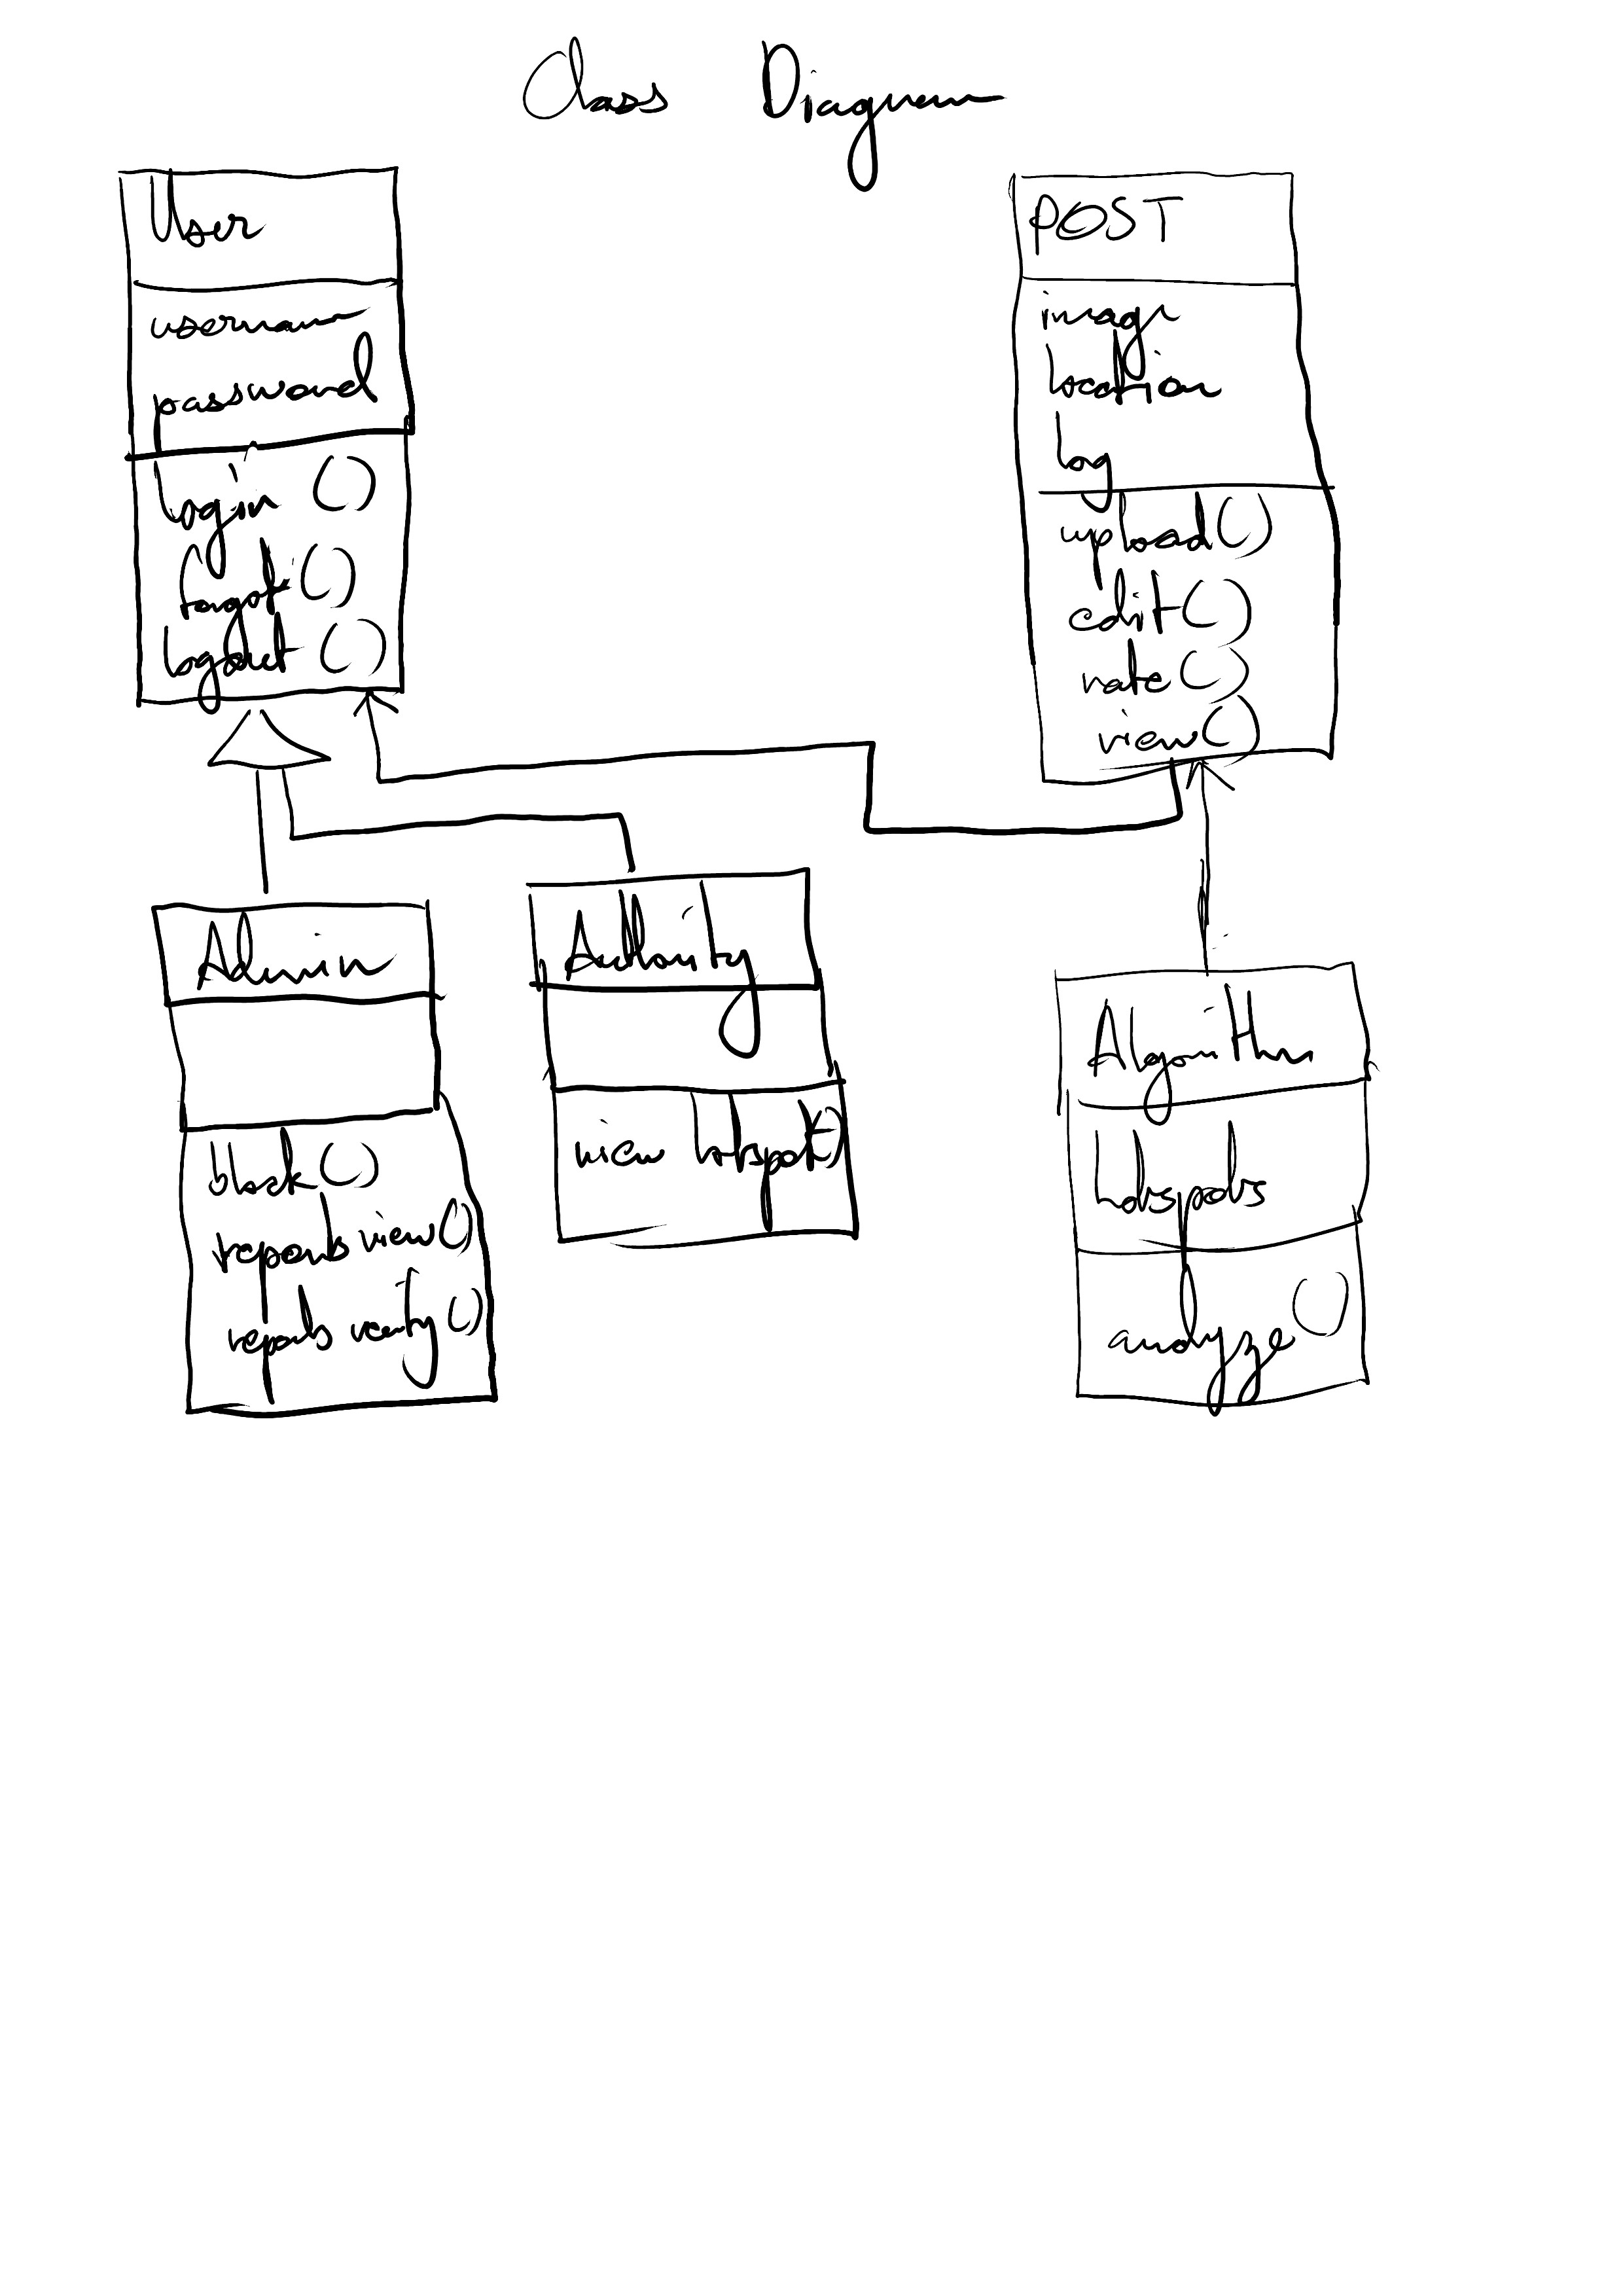 Class Diagram
User
username
password
login ()
forgot ()
logout ()
POST
image
location
log
upload ()
edit ()
rate ()
view ()
Admin
block ()
reports view ()
reports verify ()
Authority
view hotspot ()
Algorithm
hotspots
analyze ()